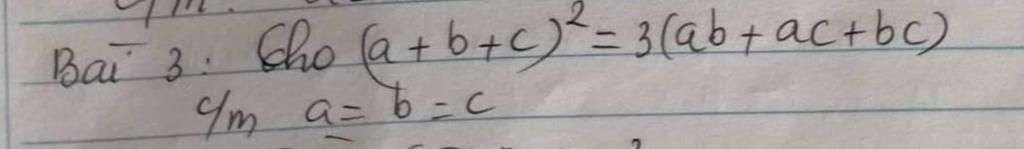 Bài 3: Cho (a + b + c)² = 3(ab + ac + bc)
c/m a = b = c